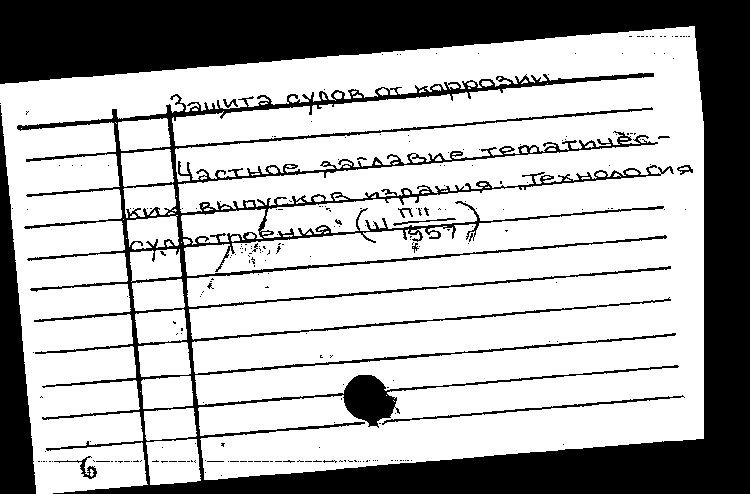 Защита судов от коррозии.
Частное заглавие тематичес-
ких выпусков издания: „Технология
судостроения" (Ш ПII
1957)
6